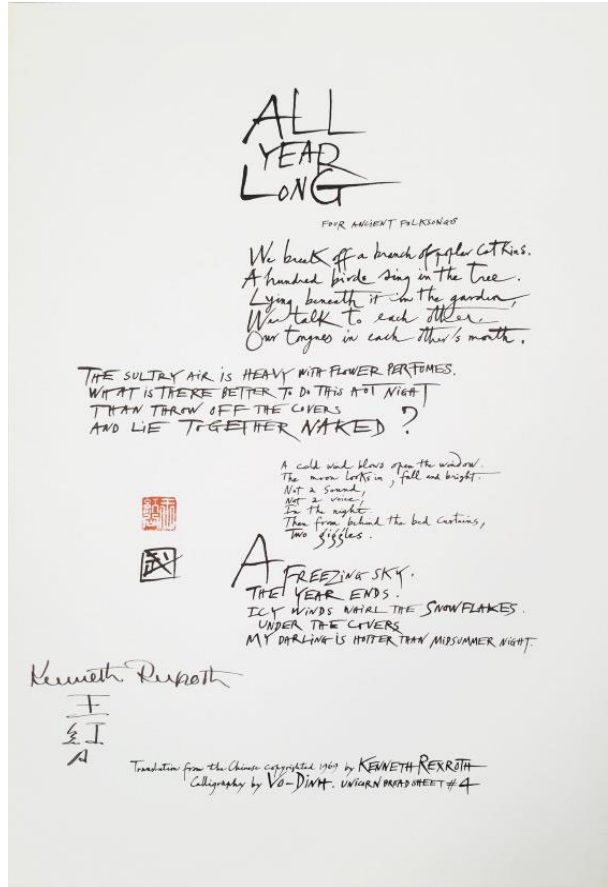 ALL
YEAR
LONG
FOUR ANCIENT FOLKSONGS
We break off a branch of poplar catkins.
A hundred birds sing in the tree.
Lying beneath it in the garden,
We talk to each other,
Our tongues in each other's mouth.
THE SULTRY AIR IS HEAVY WITH FLOWER PERFUMES.
WHAT IS THERE BETTER TO DO THIS HOT NIGHT
THAN THROW OFF THE COVERS
AND LIE TOGETHER NAKED?
A cold wind blows open the window.
The moon looks in, full and bright.
Not a sound,
Not a voice,
In the night.
Then from behind the bed curtains,
Two giggles.
A FREEZING SKY.
THE YEAR ENDS.
ICY WINDS WHIRL THE SNOWFLAKES.
UNDER THE COVERS
MY DARLING IS HOTTER THAN MIDSUMMER NIGHT.
武
Kenneth Rexroth
王
紅
Translation from the Chinese copyrighted 1969 by KENNETH REXROTH
Calligraphy by VO-DINH. UNICORN BROADSHEET #4